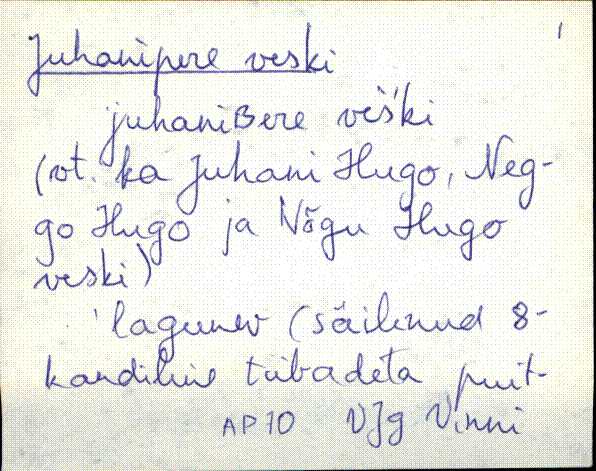 1
Juhanipere veski
juhaniBere veš́ki
(vt. ka Juhani Hugo, Neg-
go Hugo ja Nõgu Hugo
veski)
lagunev (säilinud 8-
kandiline tiibadeta puit-
AP 70 VJg Vinni